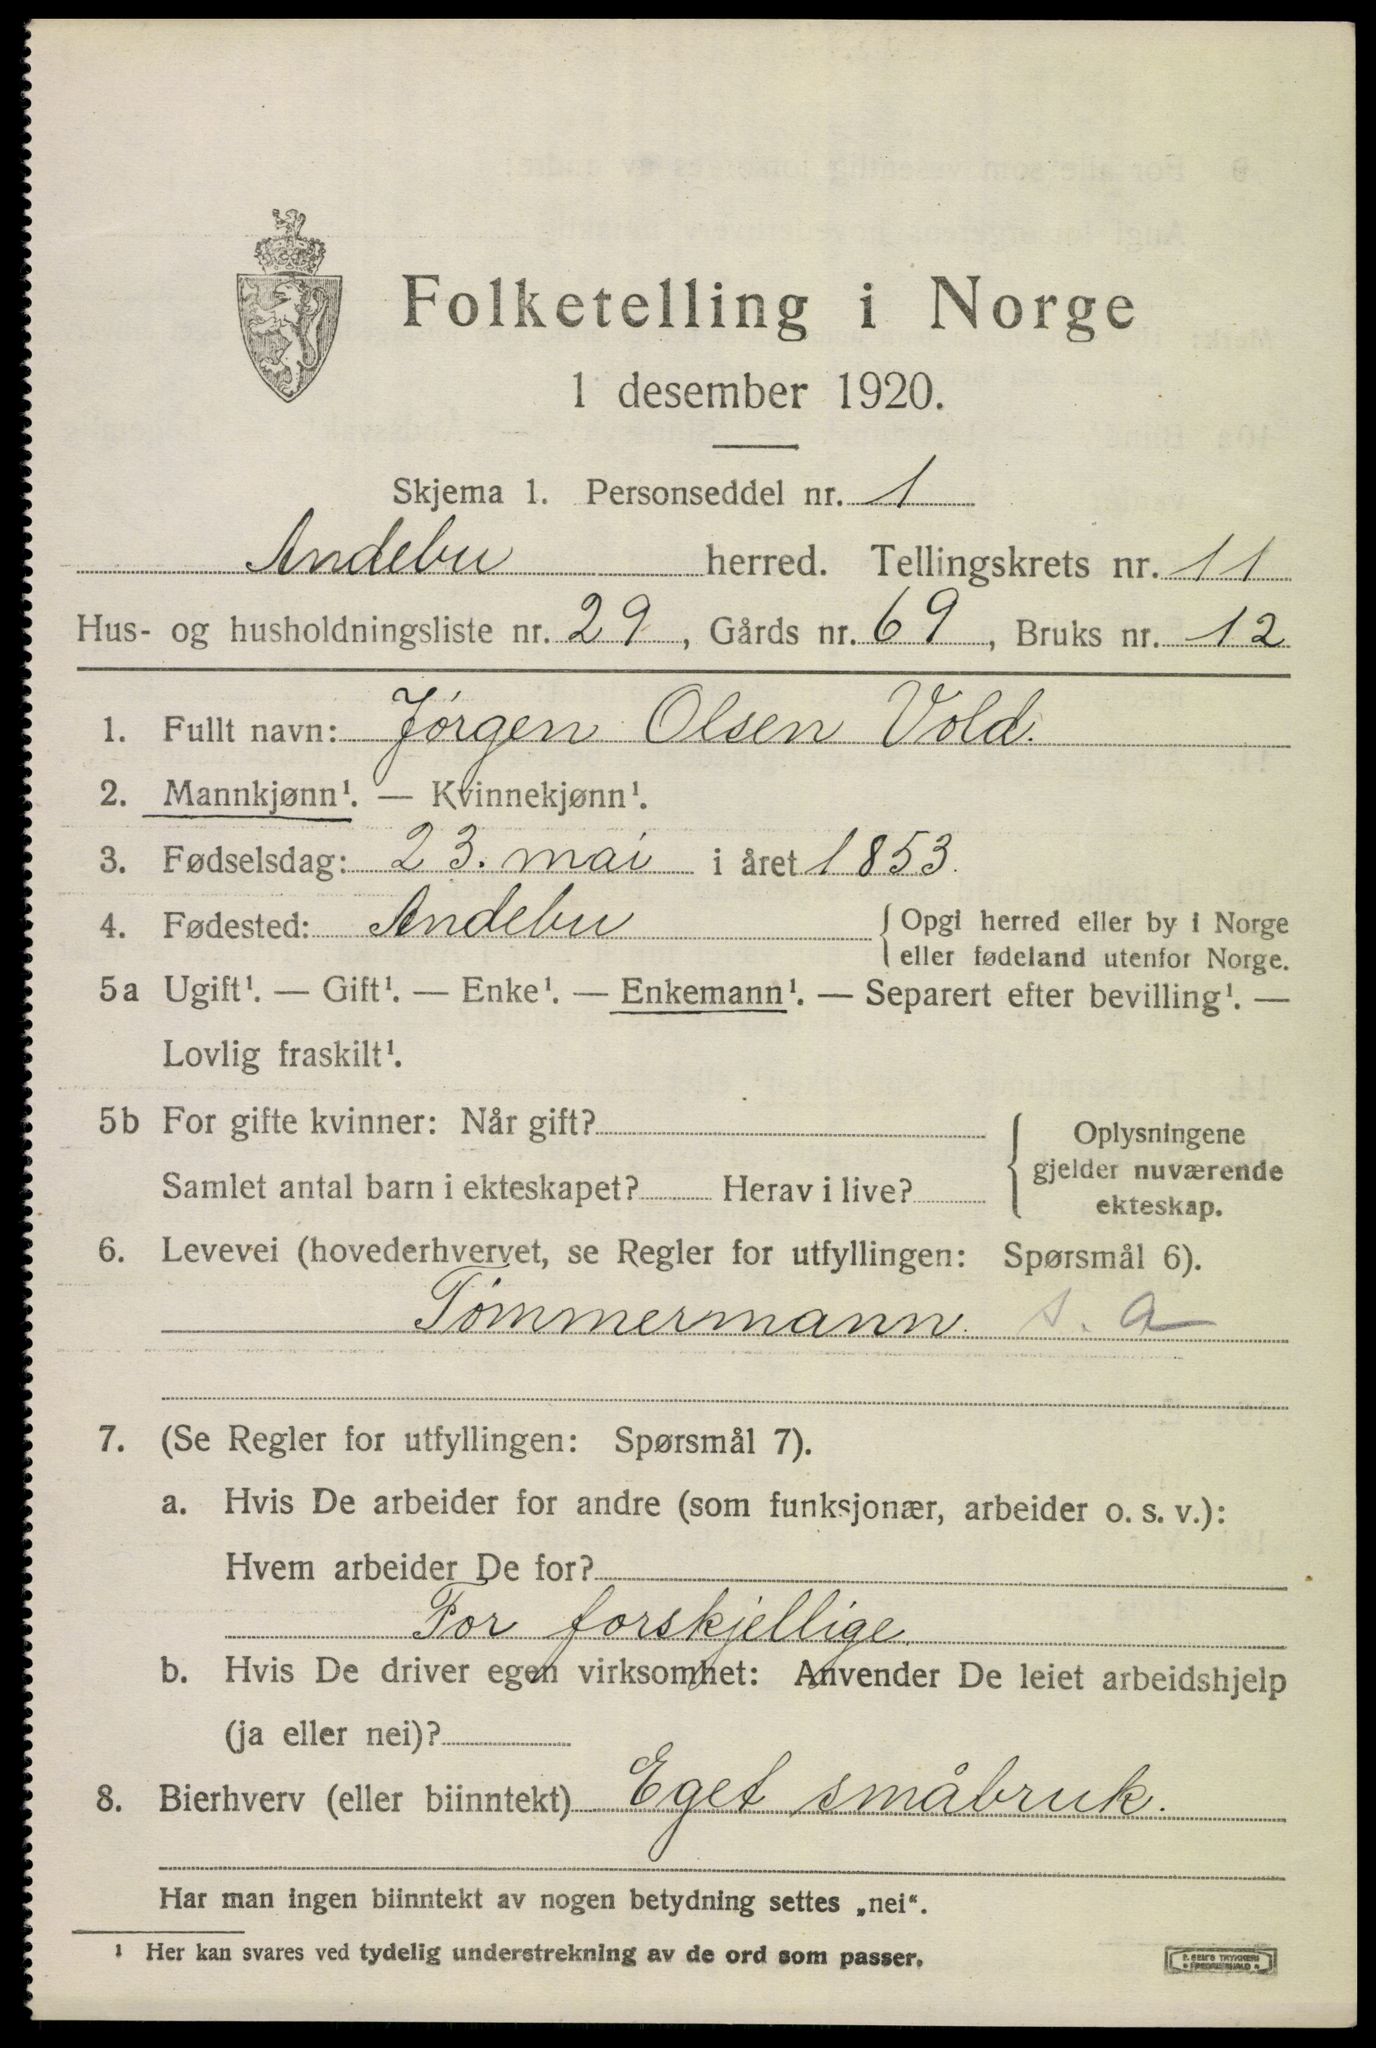 Folketelling i Norge
1 desember 1920.
Skjema 1. Personseddel nr. 1
Andebu herred. Tellingskrets nr. 11
Hus- og husholdningsliste nr. 29, Gårds nr. 69, Bruks nr. 12
1. Fullt navn: Jørgen Olsen Vold.
2. Mannkjønn¹. — Kvinnekjønn¹.
3. Fødselsdag: 23. mai i året 1853.
4. Fødested: Andebu { Opgi herred eller by i Norge
eller fødeland utenfor Norge.
5a Ugift¹. — Gift¹. — Enke¹. — Enkemann¹. — Separert efter bevilling¹. —
Lovlig fraskilt¹.
5b For gifte kvinner: Når gift?
Samlet antal barn i ekteskapet? Herav i live?
{ Oplysningene
gjelder nuværende
ekteskap.
6. Levevei (hovederhvervet, se Regler for utfyllingen: Spørsmål 6).
Tømmermann. s. a
7. (Se Regler for utfyllingen: Spørsmål 7).
a. Hvis De arbeider for andre (som funksjonær, arbeider o. s. v.):
Hvem arbeider De for?
For forskjellige.
b. Hvis De driver egen virksomhet: Anvender De leiet arbeidshjelp
(ja eller nei)?
8. Bierhverv (eller biinntekt) Eget småbruk.
Har man ingen biinntekt av nogen betydning settes „nei“.
¹ Her kan svares ved tydelig understrekning av de ord som passer.